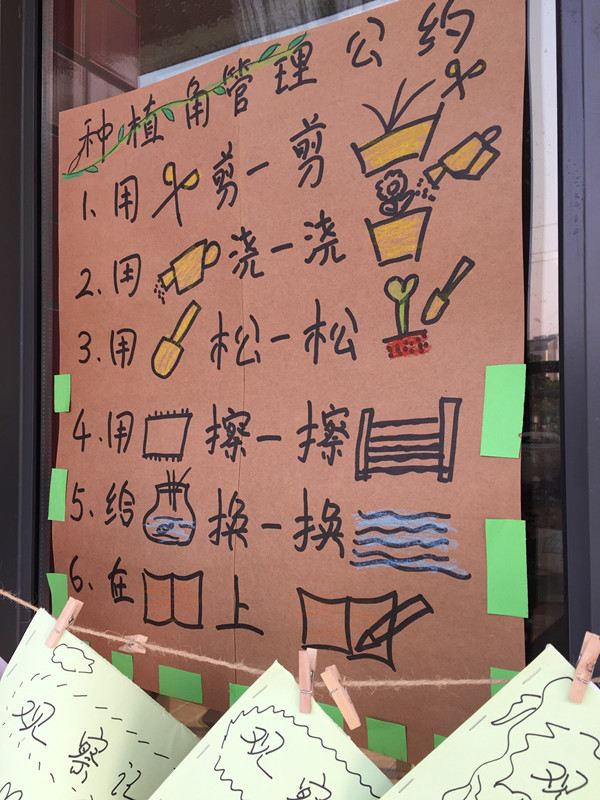 种植角管理公约
1、用 剪一剪
2、用 浇一浇
3、用 松一松
4、用 擦一擦
5、给 换一换
6、在 上
观察记
观察
观